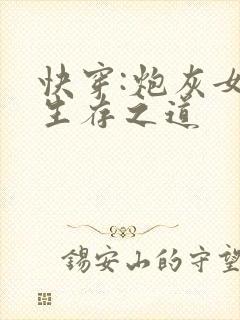 快穿:炮灰女
生存之道
锡安山的守望